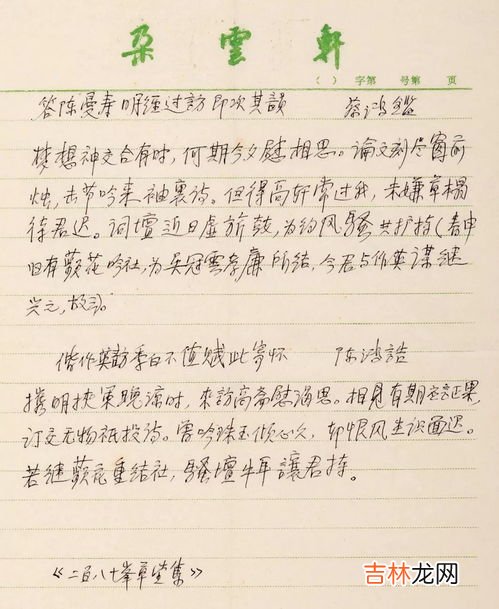 朵雲軒
( ) 字第 号第 页
答陈曼寿明经过访即次其韻 蔡鸿鑑
梦想神交合有时,何期今夕慰相思。論文刻尽窗前
烛,击节吟来袖裏诗。但得高轩常过我,未嫌草榻
待君迟。词壇近日虚旂鼓,为约风騷共护持(春申
旧有蘋花吟社,为吴冠雲孝廉所结,今君与作英谋继
兴之,故云)。
偕作英訪季白不值赋此寄怀 陈鸿誥
携朋挾策晚凉时,來訪高斋慰溯思。相見有期
订交无物祇投诗。曾吟珠玉倾心久,却恨风尘识面迟。
若继蘋花重结社,騷壇牛耳讓君持。
《二百八十峯草堂集》
吉林龙网